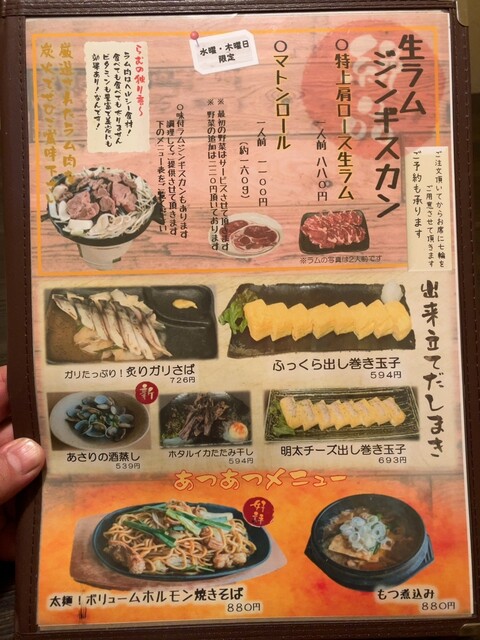 生ラム
ジンギスカン
ご注文頂いてからお席に七輪を
ご用意させて頂きます
ご予約も承ります
〇特上肩ロース生ラム
一人前 八八〇円
※ラムの写真は2人前です
水曜・木曜日
限定
〇マトンロール
一人前 一一〇〇円
(約一六〇g)
※最初の野菜はサービスさせて頂きます
※野菜の追加は二二〇円頂いております
〇味付ラムジンギスカンもあります
調理してご提供させて頂きます
下のメニュー表をご覧下さい
らむの独り言
ラム肉はヘルシー食材!
食べても食べても太りません
ビタミンも豊富で美容にも
効果あり!なんです!
出来立てだしまき
ガリたっぷり!炙りガリさば
726円
ふっくら出し巻き玉子
594円
新
あさりの酒蒸し
539円
ホタルイカたたみ干し
594円
明太チーズ出し巻き玉子
693円
あつあつメニュー
太麺!ボリュームホルモン焼きそば
880円
もつ煮込み
880円